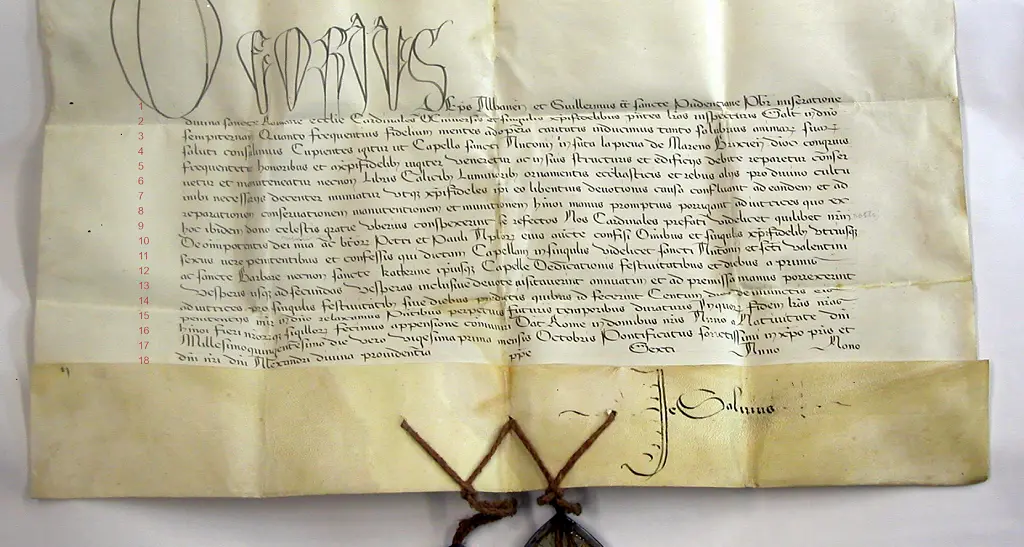 OEORIUS
1 Epo Albaneñ et Guillermus tt sancte Pudentiane Pbr miseratione
2 divina sancte Romane ecclie Cardinales Universis et singulis xpifidelibus pntes lras inspecturis Salt in dno
3 sempiternam Quanto frequentius fidelium mentes ad opera caritatis inducimus tanto salubrius animar suar
4 saluti consulimus Cupientes igitur ut Capella sancti Antonii in sita de Mareno Brixien dioc congruis
5 frequentetur honoribus et a xpifidelibz iugiter veneretur ac in suis structuris et edificiis debite reparetur conser
6 vetur et manuteneatur necnon Libris Calicibz Luminaribz ornamentis ecclesiasticis et rebus aliis pro divino cultu
7 inibi necessariis decenter muniatur utqz xpifideles ipi eo libentius devotionis causa confluant ad eandem et ad
8 reparationem conservationem manutentionem et munitionem hmoi manus promptius porrigant adiutrices quo ex
9 hoc ibidem dono celestis gratie uberius conspexerint se refectos Nos Cardinales prefati videlicet quilibet nrm
10 De omnipotentis dei mia ac btor Petri et Pauli Aplor eius aucte confisi Omnibus et singulis xpifidelibz utriusqz
11 sexus vere penitentibus et confessis qui dictam Capellam in singulis videlicet sancti Antonii et scti valentini
12 ac sancte Barbare necnon sancte Katherine ipiusqz Capelle Dedicationis festivitatibus et diebus a primis
13 vesperis usqz ad secundas vesperas inclusive devote visitaverint annuatim et ad premissa manus porrexerint
14 adiutrices pro singulis festivitatibz sive diebus pdictis quibus id fecerint Centum dies de iniunctis eis
15 penitentiis mir in dno relaxamus Pntibus perpetuis futuris temporibus duraturis In quor fidem lras nras
16 hmoi fieri nrorqz sigillor fecimus appensione communiri Dat Rome in domibus nris Anno A Nativitate dni
17 Millesimoquingentesimo die vero vigesimaprima mensis Octobris Pontificatus sanctissimi in xpo pris et
18 dni nri dni Alexandri divina providentia ppe Sexti Anno Nono
Jo Salinus